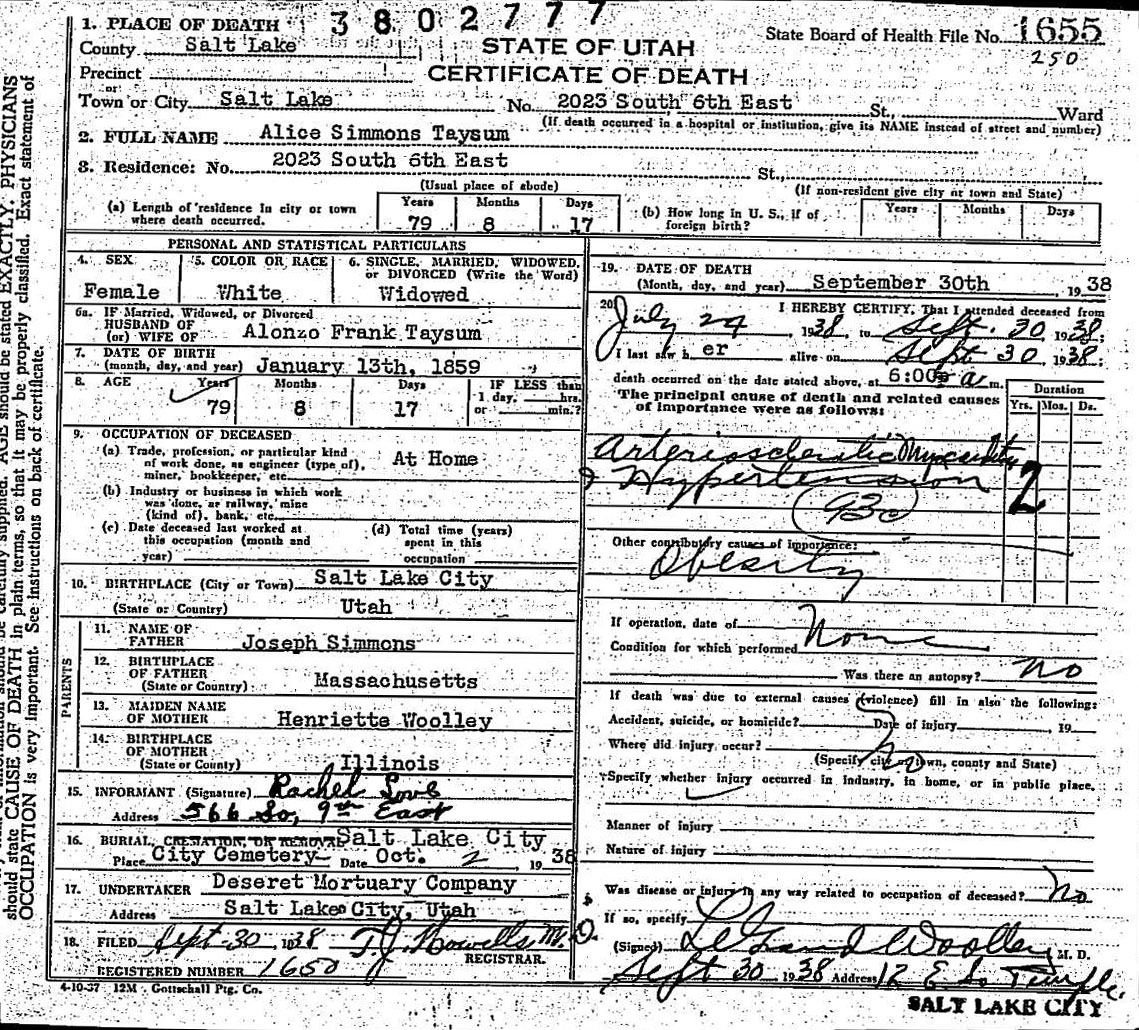 3802777
1. PLACE OF DEATH
County Salt Lake
STATE OF UTAH
State Board of Health File No. 1655
250
Precinct
or
CERTIFICATE OF DEATH
Town or City Salt Lake No. 2023 South 6th East St., Ward
(If death occurred in a hospital or institution, give its NAME instead of street and number)
2. FULL NAME Alice Simmons Taysum
3. Residence: No. 2023 South 6th East St.,
(Usual place of abode) (If non-resident give city or town and State)
(a) Length of residence in city or town where death occurred. Years 79 Months 8 Days 17
(b) How long in U. S., if of foreign birth? Years Months Days
PERSONAL AND STATISTICAL PARTICULARS
4. SEX Female
5. COLOR OR RACE White
6. SINGLE, MARRIED, WIDOWED, or DIVORCED (Write the Word) Widowed
6a. IF Married, Widowed, or Divorced
HUSBAND OF
(or) WIFE OF Alonzo Frank Taysum
7. DATE OF BIRTH
(month, day, and year) January 13th, 1859
8. AGE Years 79 Months 8 Days 17 IF LESS than 1 day, hrs. or min.?
9. OCCUPATION OF DECEASED
(a) Trade, profession, or particular kind of work done, as engineer (type of), miner, bookkeeper, etc. At Home
(b) Industry or business in which work was done, as railway, mine (kind of), bank, etc.
(c) Date deceased last worked at this occupation (month and year)
(d) Total time (years) spent in this occupation
10. BIRTHPLACE (City or Town) Salt Lake City
(State or Country) Utah
PARENTS
11. NAME OF FATHER Joseph Simmons
12. BIRTHPLACE OF FATHER
(State or Country) Massachusetts
13. MAIDEN NAME OF MOTHER Henriette Woolley
14. BIRTHPLACE OF MOTHER
(State or County) Illinois
15. INFORMANT (Signature) Rachel Love
Address 566 So, 9th East
16. BURIAL, CREMATION, OR REMOVAL Salt Lake City
Place City Cemetery Date Oct. 2 1938
17. UNDERTAKER Deseret Mortuary Company
Address Salt Lake City, Utah
18. FILED Sept 30 1938 T.J. Howells M.D.
REGISTRAR.
REGISTERED NUMBER 1650
4-10-37 12M Gottschall Ptg. Co.
19. DATE OF DEATH
(Month, day, and year) September 30th 1938
20. I HEREBY CERTIFY, That I attended deceased from
July 29 1938, to Sept. 30 1938;
I last saw her alive on Sept 30 1938.
death occurred on the date stated above, at 6:00 a m.
The principal cause of death and related causes of importance were as follows:
Duration
Yrs. Mos. Ds.
Arteriosclerotic Myocarditis
& Hypertension 2
(93c)
Other contributory causes of importance:
Obesity
If operation, date of None
Condition for which performed
Was there an autopsy? no
If death was due to external causes (violence) fill in also the following:
Accident, suicide, or homicide? Date of injury 19
Where did injury occur? no
(Specify city or town, county and State)
Specify whether injury occurred in industry, in home, or in public place.
Manner of injury
Nature of injury
Was disease or injury in any way related to occupation of deceased? No
If so, specify
(Signed) LeGrand Woolley M. D.
Sept 30 1938 Address 12 E So Temple
SALT LAKE CITY
should state CAUSE OF DEATH in plain terms, so that it may be properly classified. Exact statement of
OCCUPATION is very important. See instructions on back of certificate.
AGE should be stated EXACTLY. PHYSICIANS